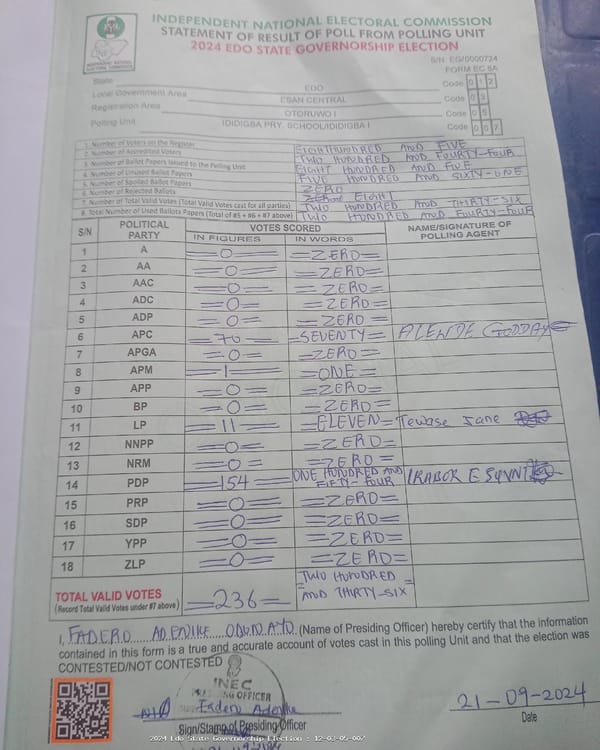 INDEPENDENT NATIONAL ELECTORAL COMMISSION
STATEMENT OF RESULT OF POLL FROM POLLING UNIT
2024 EDO STATE GOVERNORSHIP ELECTION
S/N EG/0000724
FORM EC 8A
State EDO Code 1 2
Local Government Area ESAN CENTRAL Code 0 3
Registration Area OTORUWO I Code 0 5
Polling Unit IDIDIGBA PRY. SCHOOL/IDIDIGBA I Code 0 0 7
1. Number of Voters on the Register EIGHT HUNDRED AND FIVE
2. Number of Accredited Voters TWO HUNDRED AND FOURTY-FOUR
3. Number of Ballot Papers Issued to the Polling Unit EIGHT HUNDRED AND FIVE
4. Number of Unused Ballot Papers FIVE HUNDRED AND SIXTY-ONE
5. Number of Spoiled Ballot Papers ZERO
6. Number of Rejected Ballots EIGHT
7. Number of Total Valid Votes (Total Valid Votes cast for all parties) TWO HUNDRED AND THIRTY-SIX
8. Total Number of Used Ballots Papers (Total of #5 + #6 + #7 above) TWO HUNDRED AND FOURTY-FOUR
S/N POLITICAL PARTY VOTES SCORED NAME/SIGNATURE OF POLLING AGENT
IN FIGURES IN WORDS
1 A =0= =ZERO=
2 AA =0= =ZERO=
3 AAC =0= =ZERO=
4 ADC =0= =ZERO=
5 ADP =0= =ZERO=
6 APC =70= =SEVENTY= GODDAY
7 APGA =0= =ZERO=
8 APM =1= =ONE=
9 APP =0= =ZERO=
10 BP =0= =ZERO=
11 LP =11= =ELEVEN= Jane
12 NNPP =0= =ZERO=
13 NRM =0= =ZERO=
14 PDP =154= ONE HUNDRED AND FIFTY-FOUR IRABOR E SUNNY
15 PRP =0= =ZERO=
16 SDP =0= =ZERO=
17 YPP =0= =ZERO=
18 ZLP =0= =ZERO=
TOTAL VALID VOTES =236= TWO HUNDRED AND THIRTY-SIX
(Record Total Valid Votes under #7 above)
I, FADERO ADENIKE ODUNAYO (Name of Presiding Officer) hereby certify that the information
contained in this form is a true and accurate account of votes cast in this polling Unit and that the election was
CONTESTED/NOT CONTESTED
INEC
PRESIDING OFFICER
Fadero Adenike
21-09-2024
Sign/Stamp of Presiding Officer Date
2024 Edo State Governorship Election : 12-03-05-007